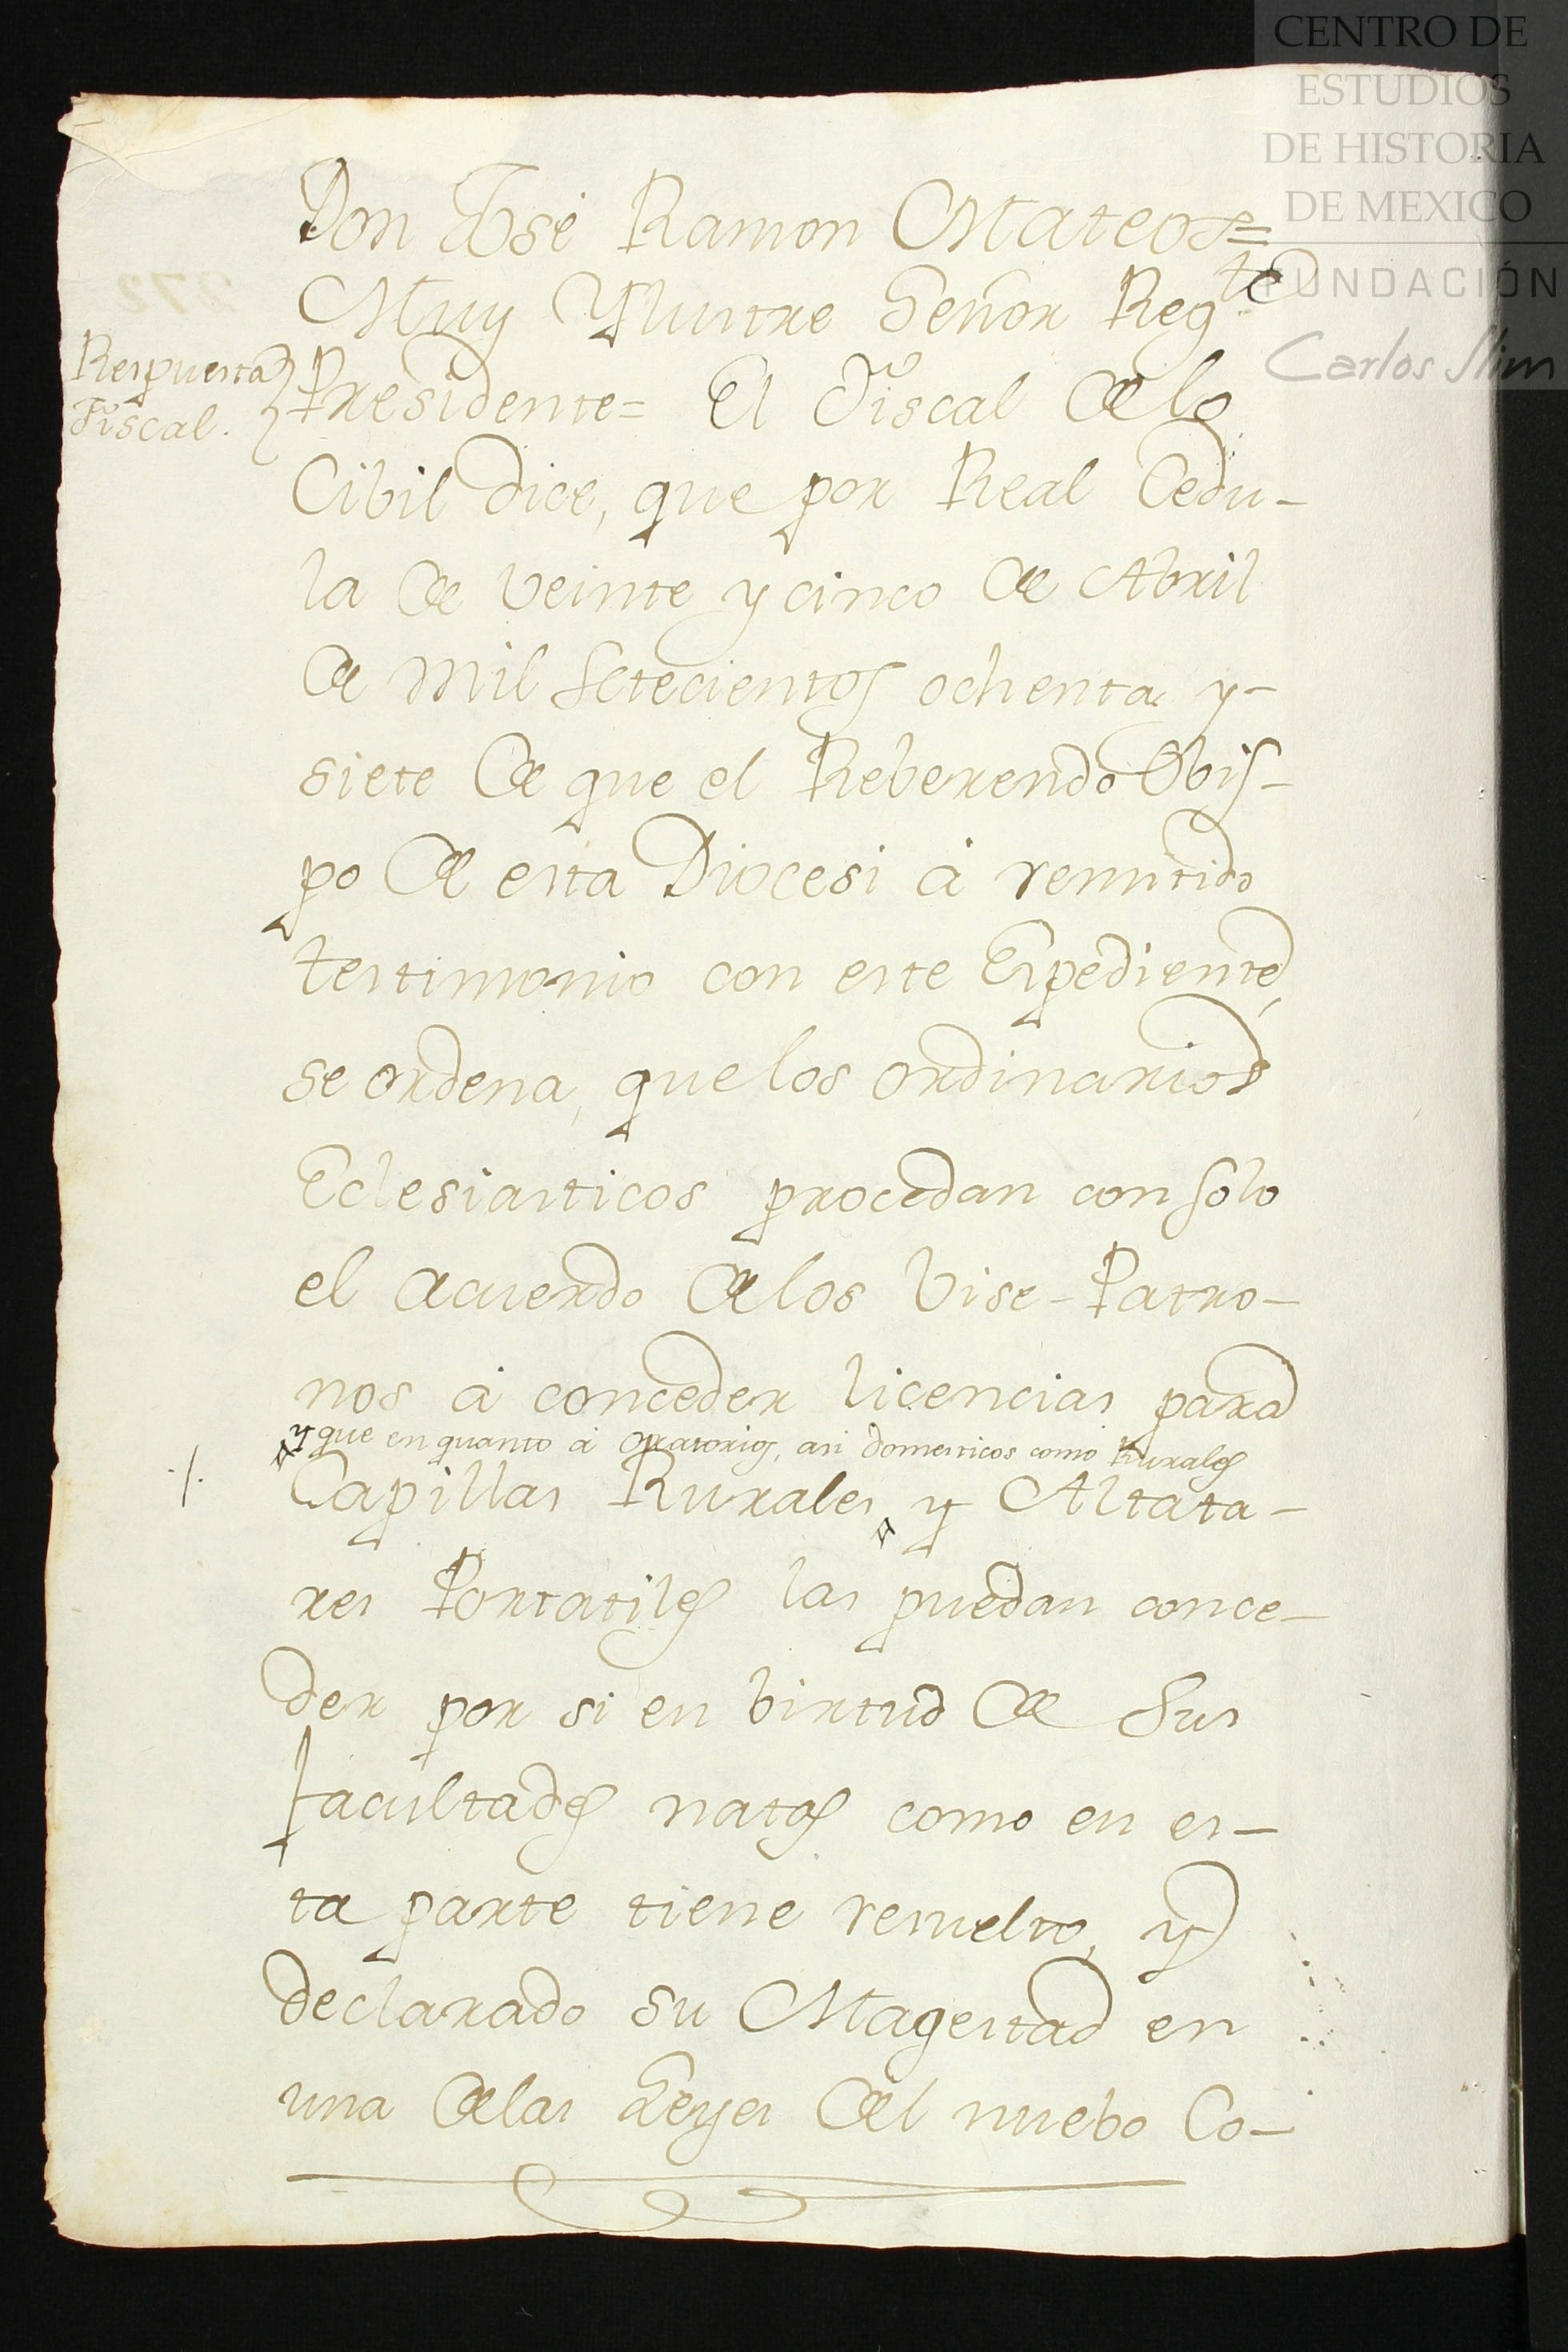 CENTRO DE
ESTUDIOS
DE HISTORIA
DE MEXICO
FUNDACIÓN
Carlos Slim
Don Jose Ramon Mateos=
Muy Yllustre Señor Reg.te
Respuesta
Fiscal.
Presidente= El Fiscal de lo
Cibil dice, que por Real Cedu-
la de veinte y cinco de Abril
de mil setecientos ochenta y-
siete de que el Reberendo Obis-
po de esta Diocesi á remitido
testimonio con este Espediente,
se ordena, que los ordinarios
Eclesiasticos procedan con solo
el acuerdo de los Vise-Patro-
nos á conceder licencias para
y que en quanto á oratorios, asi domesticos como Rurales
Capillas Rurales, y Altata-
res Portatiles las puedan conce-
der por si en birtud de Sus
facultades natas como en es-
ta parte tiene resuelto, y
declarado su Magestad en
una de las Leyes del nuebo Co-